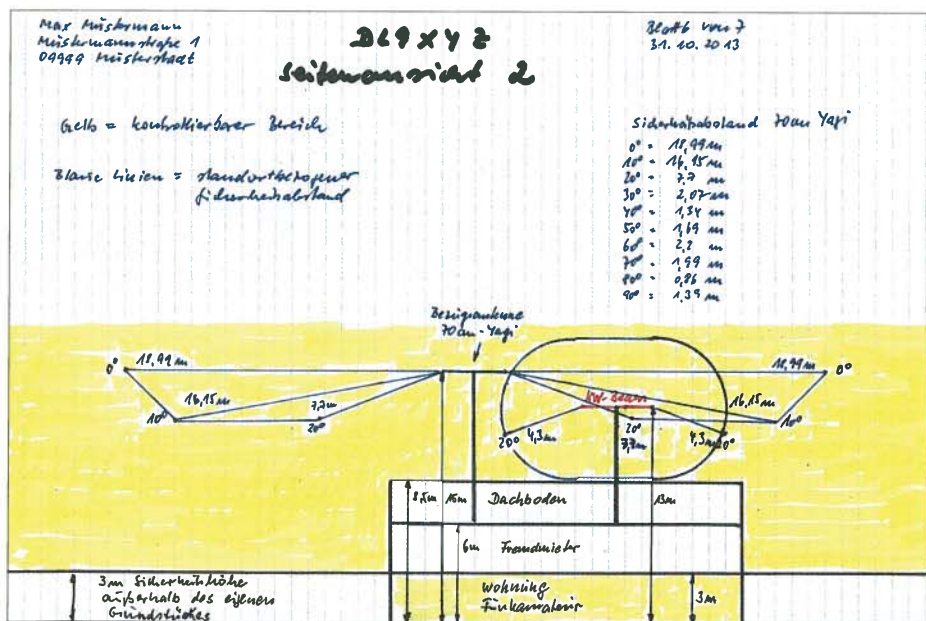 Max Mustermann
Mustermannstraße 1
09999 Musterstadt
DL9XYZ
Seitenansicht 2
Blatt 6 von 7
31.10.2013
Gelb = kontrollierbarer Bereich
Blaue Linien = standortbezogener
Sicherheitsabstand
Sicherheitsabstand 70cm Yagi
0° = 18,99 m
10° = 16,15 m
20° = 7,7 m
30° = 2,07 m
40° = 1,34 m
50° = 1,69 m
60° = 2,2 m
70° = 1,99 m
80° = 0,86 m
90° = 1,39 m
Bezugsantenne
70cm-Yagi
0° 18,99m
18,99m 0°
16,15m
7,7m
10°
20°
KW-Beam
16,15m
10°
20° 4,3m
20°
7,7m
4,3m 20°
8,5m
15m
Dachboden
13m
6m
Fremdmieter
3m Sicherheitshöhe
außerhalb des eigenen
Grundstückes
Wohnung
Funkamateur
3m